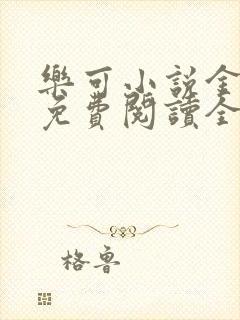 樂可小說全
免費閱讀全
格魯